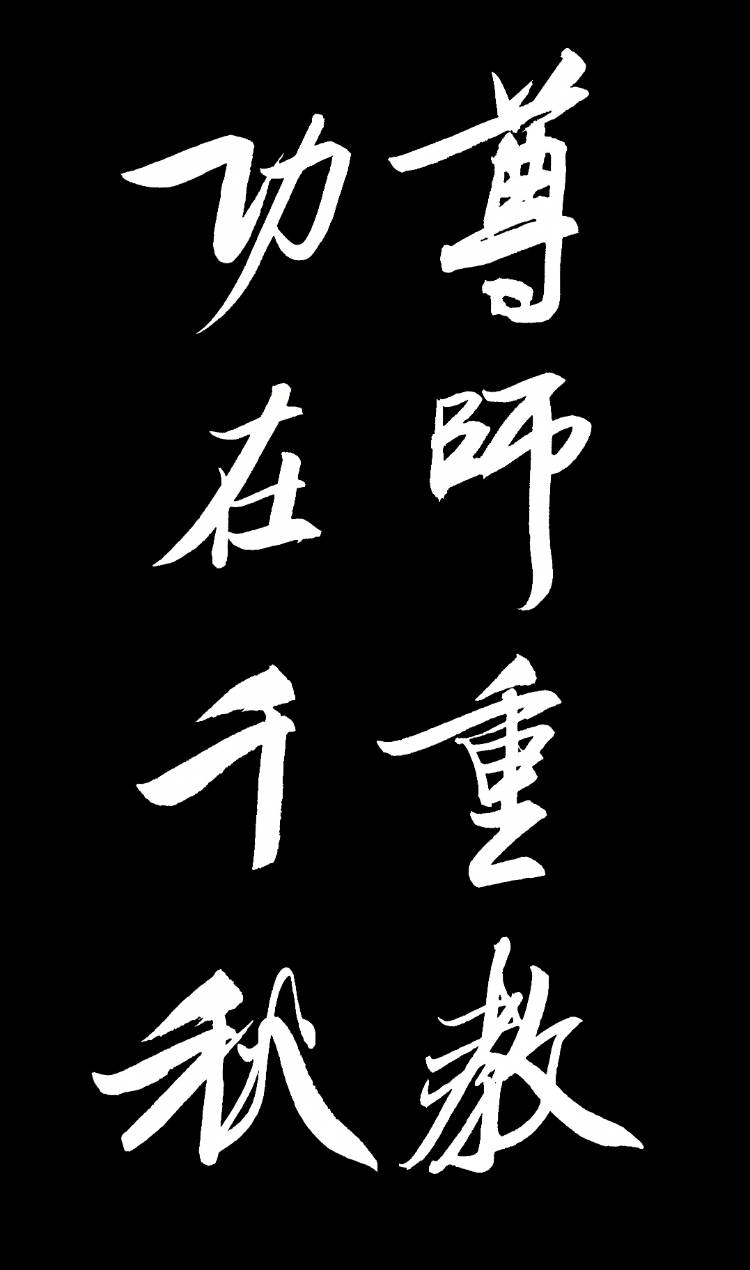 尊師重教
功在千秋